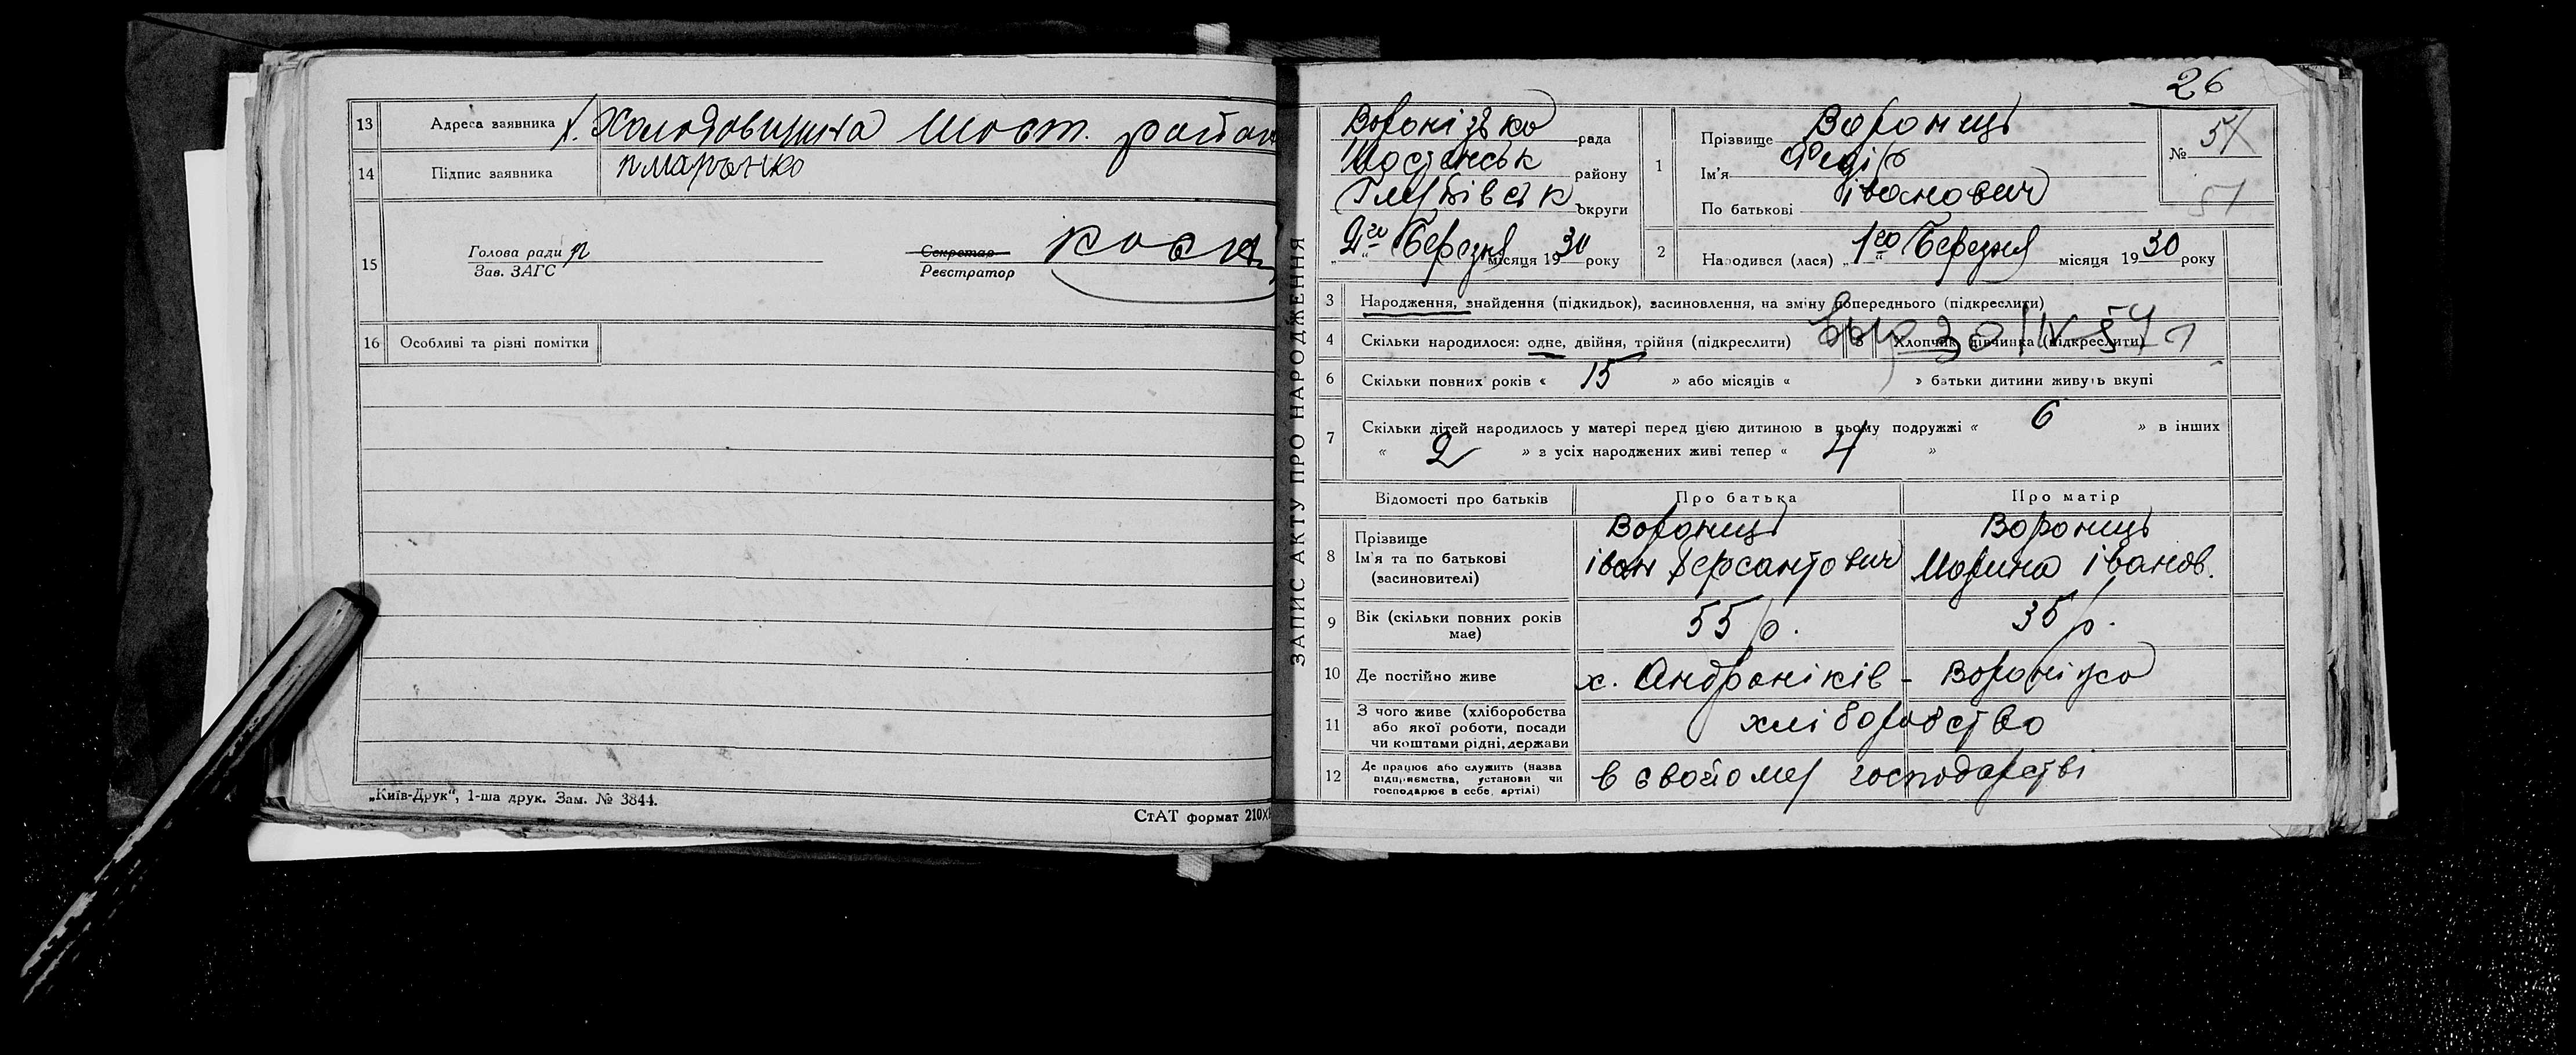 13 Адреса заявника х. Холодовищина Шост. район
14 Підпис заявника пмаренко
15 Голова ради
Зав. ЗАГС
Секретар
Реєстратор
16 Особливі та різні помітки
„Київ-Друк“, 1-ша друк. Зам. № 3844.
СтАТ формат 210х
ЗАПИС АКТУ ПРО НАРОДЖЕННЯ
26
Воронізька рада
Шостенськ району
Глухівськ округи
„2го“ Березня місяця 1930 року
1 Прізвище Воронець
Ім'я Федір
По батькові іванович
№ 51
51
2 Народився (лася) „1го“ Березня місяця 1930 року
3 Народження, знайдення (підкидьок), засиновлення, на зміну попереднього (підкреслити)
4 Скільки народилося: одне, двійня, трійня (підкреслити) 5 Хлопчик, дівчинка (підкреслити)
6 Скільки повних років « 15 » або місяців « » батьки дитини живуть вкупі
7 Скільки дітей народилось у матері перед цією дитиною в цьому подружжі « 6 » в інших
« 2 » з усіх народжених живі тепер « 4 »
Відомості про батьків Про батька Про матір
8 Прізвище Воронець Воронець
Ім'я та по батькові іван Марина іванов.
(засиновителі)
9 Вік (скільки повних років має) 55 р. 35 р.
10 Де постійно живе х. Андроніків - Воронізка
11 З чого живе (хліборобства або якої роботи, посади чи коштами рідні, держави хліборобство
12 Де працює або служить (назва підприємства, установи чи господарює в себе, артілі) в свойому господарстві